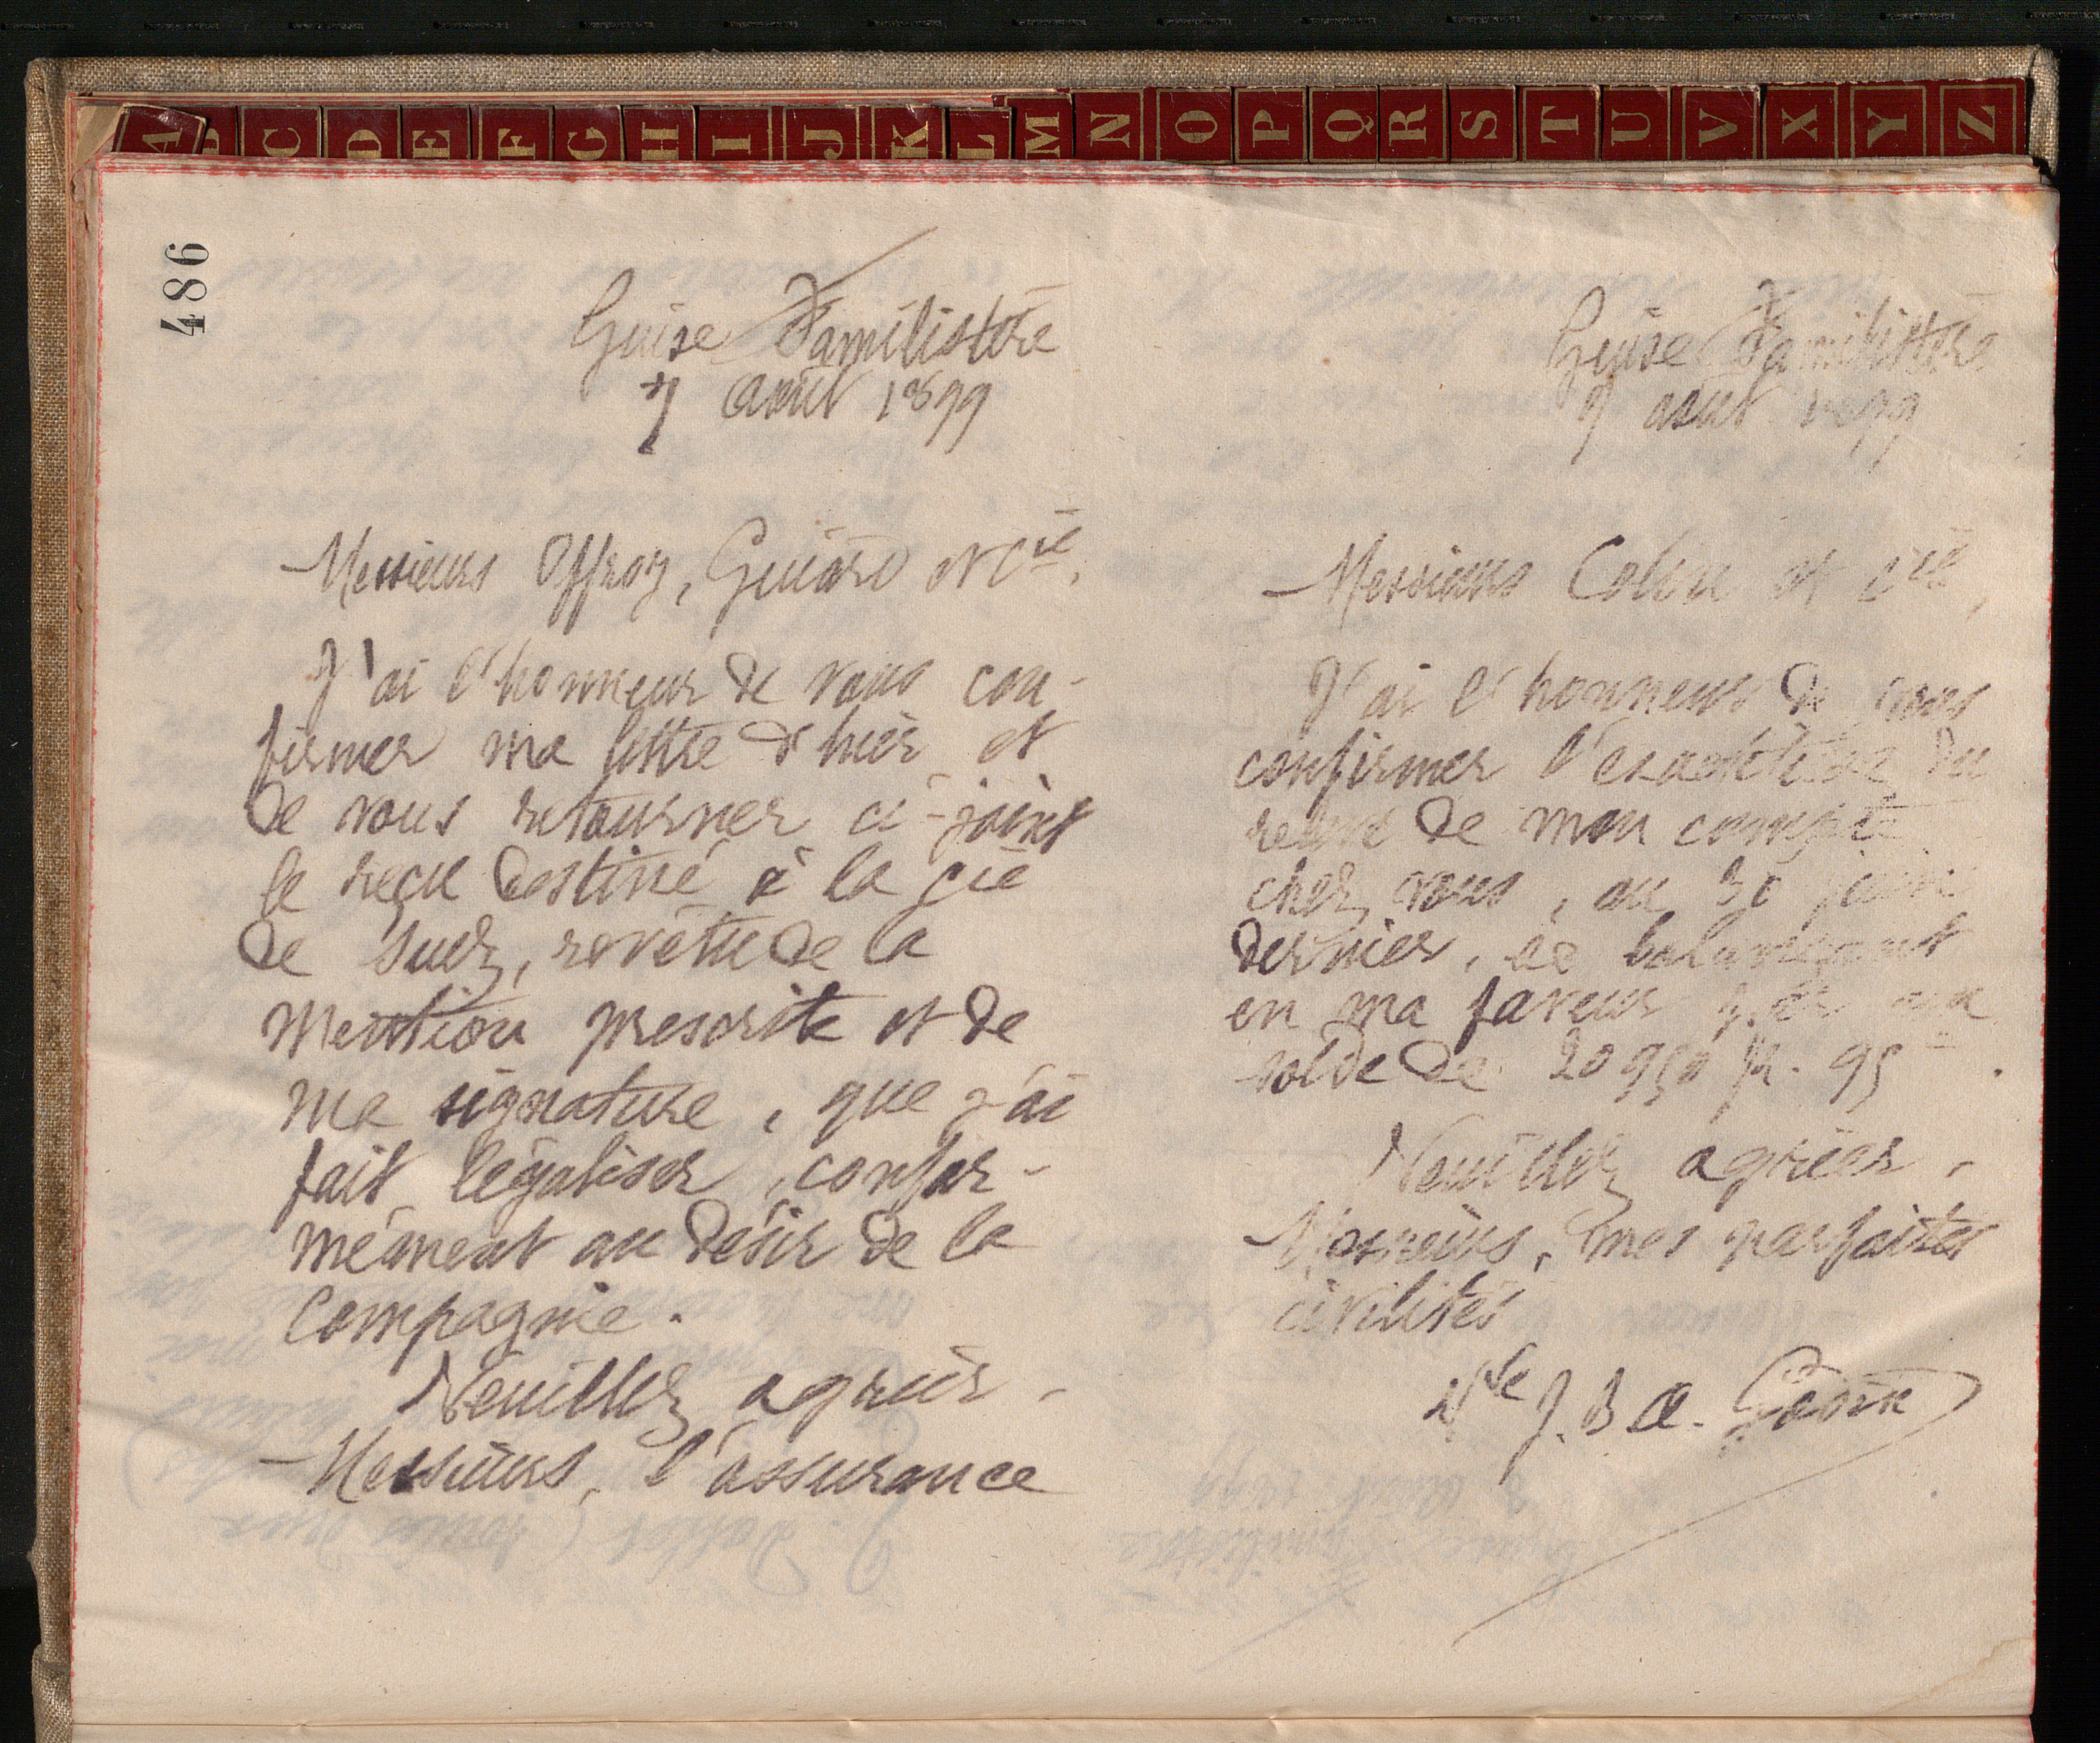 A B C D E F G H I J K L M N O P Q R S T U V X Y Z
486
Guise Familistère
7 août 1899
Messieurs Offroy, Guiard et Cie,
J'ai l'honneur de vous con-
firmer ma lettre d'hier et
de vous retourner ci-joint
le reçu destiné à la Cie
de Suez, revêtu de la
mention prescrite et de
ma signature, que j'ai
fait légaliser, confor-
mément au désir de la
Compagnie.
Veuillez agréer,
Messieurs, l'assurance
Guise Familistère
7 août 1899
Messieurs et Cie,
J'ai l'honneur de vous
confirmer l'exactitude du
relevé de mon compte
chez vous, au 30 juin
dernier, se balançant
en ma faveur par un
solde de 20950 fr. 95
Veuillez agréer,
Messieurs, mes parfaites
civilités
Vve J. B. A. Godin